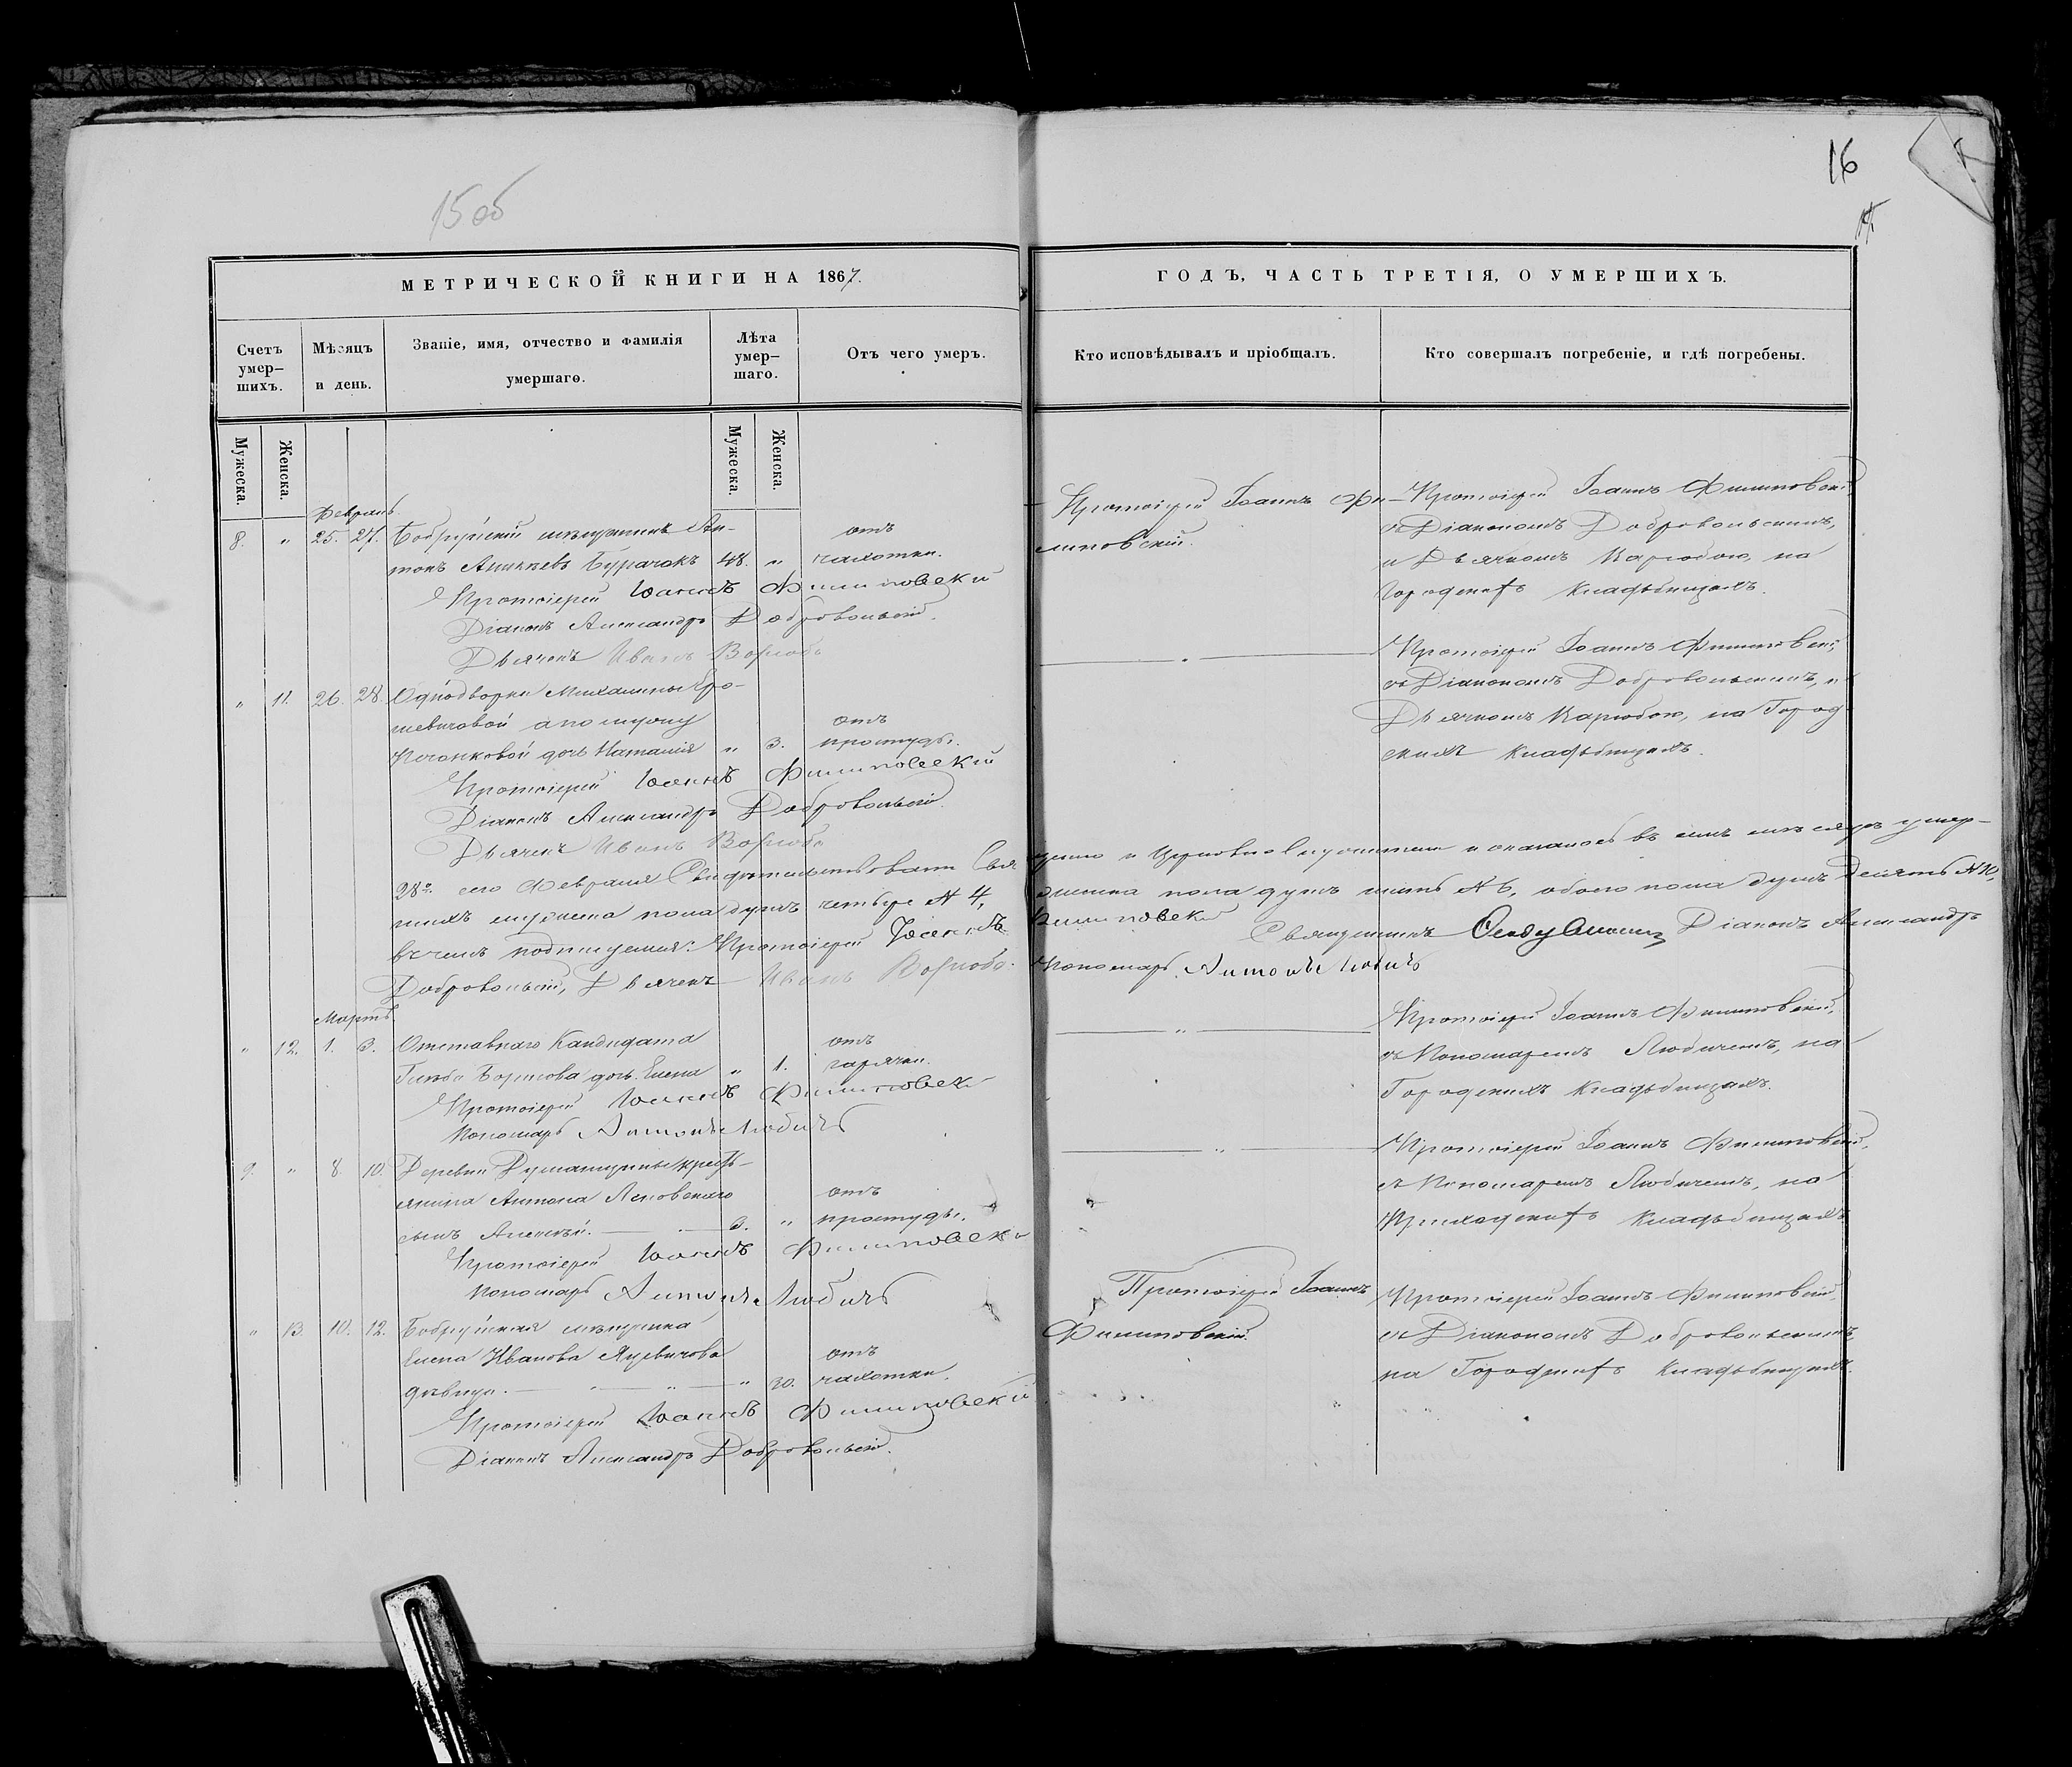 15об
16
МЕТРИЧЕСКОЙ КНИГИ НА 1867.
Счетъ умер-шихъ.
Мѣсяцъ и день.
Званіе, имя, отчество и фамилія умершаго.
Лѣта умер-шаго.
Отъ чего умеръ.
Мужеска.
Женска.
Мужеска.
Женска.
Февраль
8. " 25. 27. Бобруйскій мѣщанинъ Ан- отъ
тонъ Бурачокъ 48. " чахотки.
Протоіерей Іоаннъ Филиповскій
Діаконъ Александръ Добровольскій.
Дьячекъ Иванъ
" 11. 26. 28. Однодворки
отъ
дочь Наталія " 3. простуды.
Протоіерей Іоаннъ Филиповскій
Діаконъ Александръ Добровольскій.
Дьячекъ Иванъ
28го сего Февраля Свидѣтельствовали
шихъ мужеска пола душъ четыре № 4,
въ чемъ подписуемся: Протоіерей Іоаннъ
Добровольскій, Дьячекъ Иванъ
Мартъ.
" 12. 1. 3. Отставнаго Кандидата отъ
Глѣба Борисова дочь Елена " 1. горячки.
Протоіерей Іоаннъ Филиповскій
Пономарь Антонъ Любичъ
9. " 8. 10. Деревни кресть-
янина Антона отъ
сынъ Алексѣй. 3. " простуды.
Протоіерей Іоаннъ Филиповскій
Пономарь Антонъ Любичъ
" 13. 10. 12. Бобруйская мѣщанка
Елена Иванова отъ
дѣвица. " 30. чахотки.
Протоіерей Іоаннъ Филиповскій
Діаконъ Александръ Добровольскій.
ГОДЪ, ЧАСТЬ ТРЕТІЯ, О УМЕРШИХЪ.
Кто исповѣдывалъ и пріобщалъ.
Кто совершалъ погребеніе, и гдѣ погребены.
Протоіерей Іоаннъ Фи-
липовскій.
Протоіерей Іоаннъ Филиповскій,
съ Діакономъ Добровольскимъ,
и Дьячкомъ на
Городскихъ кладбищахъ.
Протоіерей Іоаннъ Филиповскій,
съ Діакономъ Добровольскимъ, и
Дьячкомъ на Город-
скихъ кладбищахъ.
и оказалось въ семъ мѣсяцѣ умер-
женска пола душъ шесть № 6, обоего пола душъ десять № 10,
Филиповскій Священникъ Діаконъ Александръ
Пономарь Антонъ Любичъ
Протоіерей Іоаннъ Филиповскій,
съ Пономаремъ Любичемъ, на
Городскихъ кладбищахъ.
Протоіерей Іоаннъ Филиповскій,
съ Пономаремъ Любичемъ, на
Приходскихъ кладбищахъ
Протоіерей Іоаннъ
Филиповскій.
Протоіерей Іоаннъ Филиповскій,
съ Діакономъ Добровольскимъ,
на Городскихъ кладбищахъ.